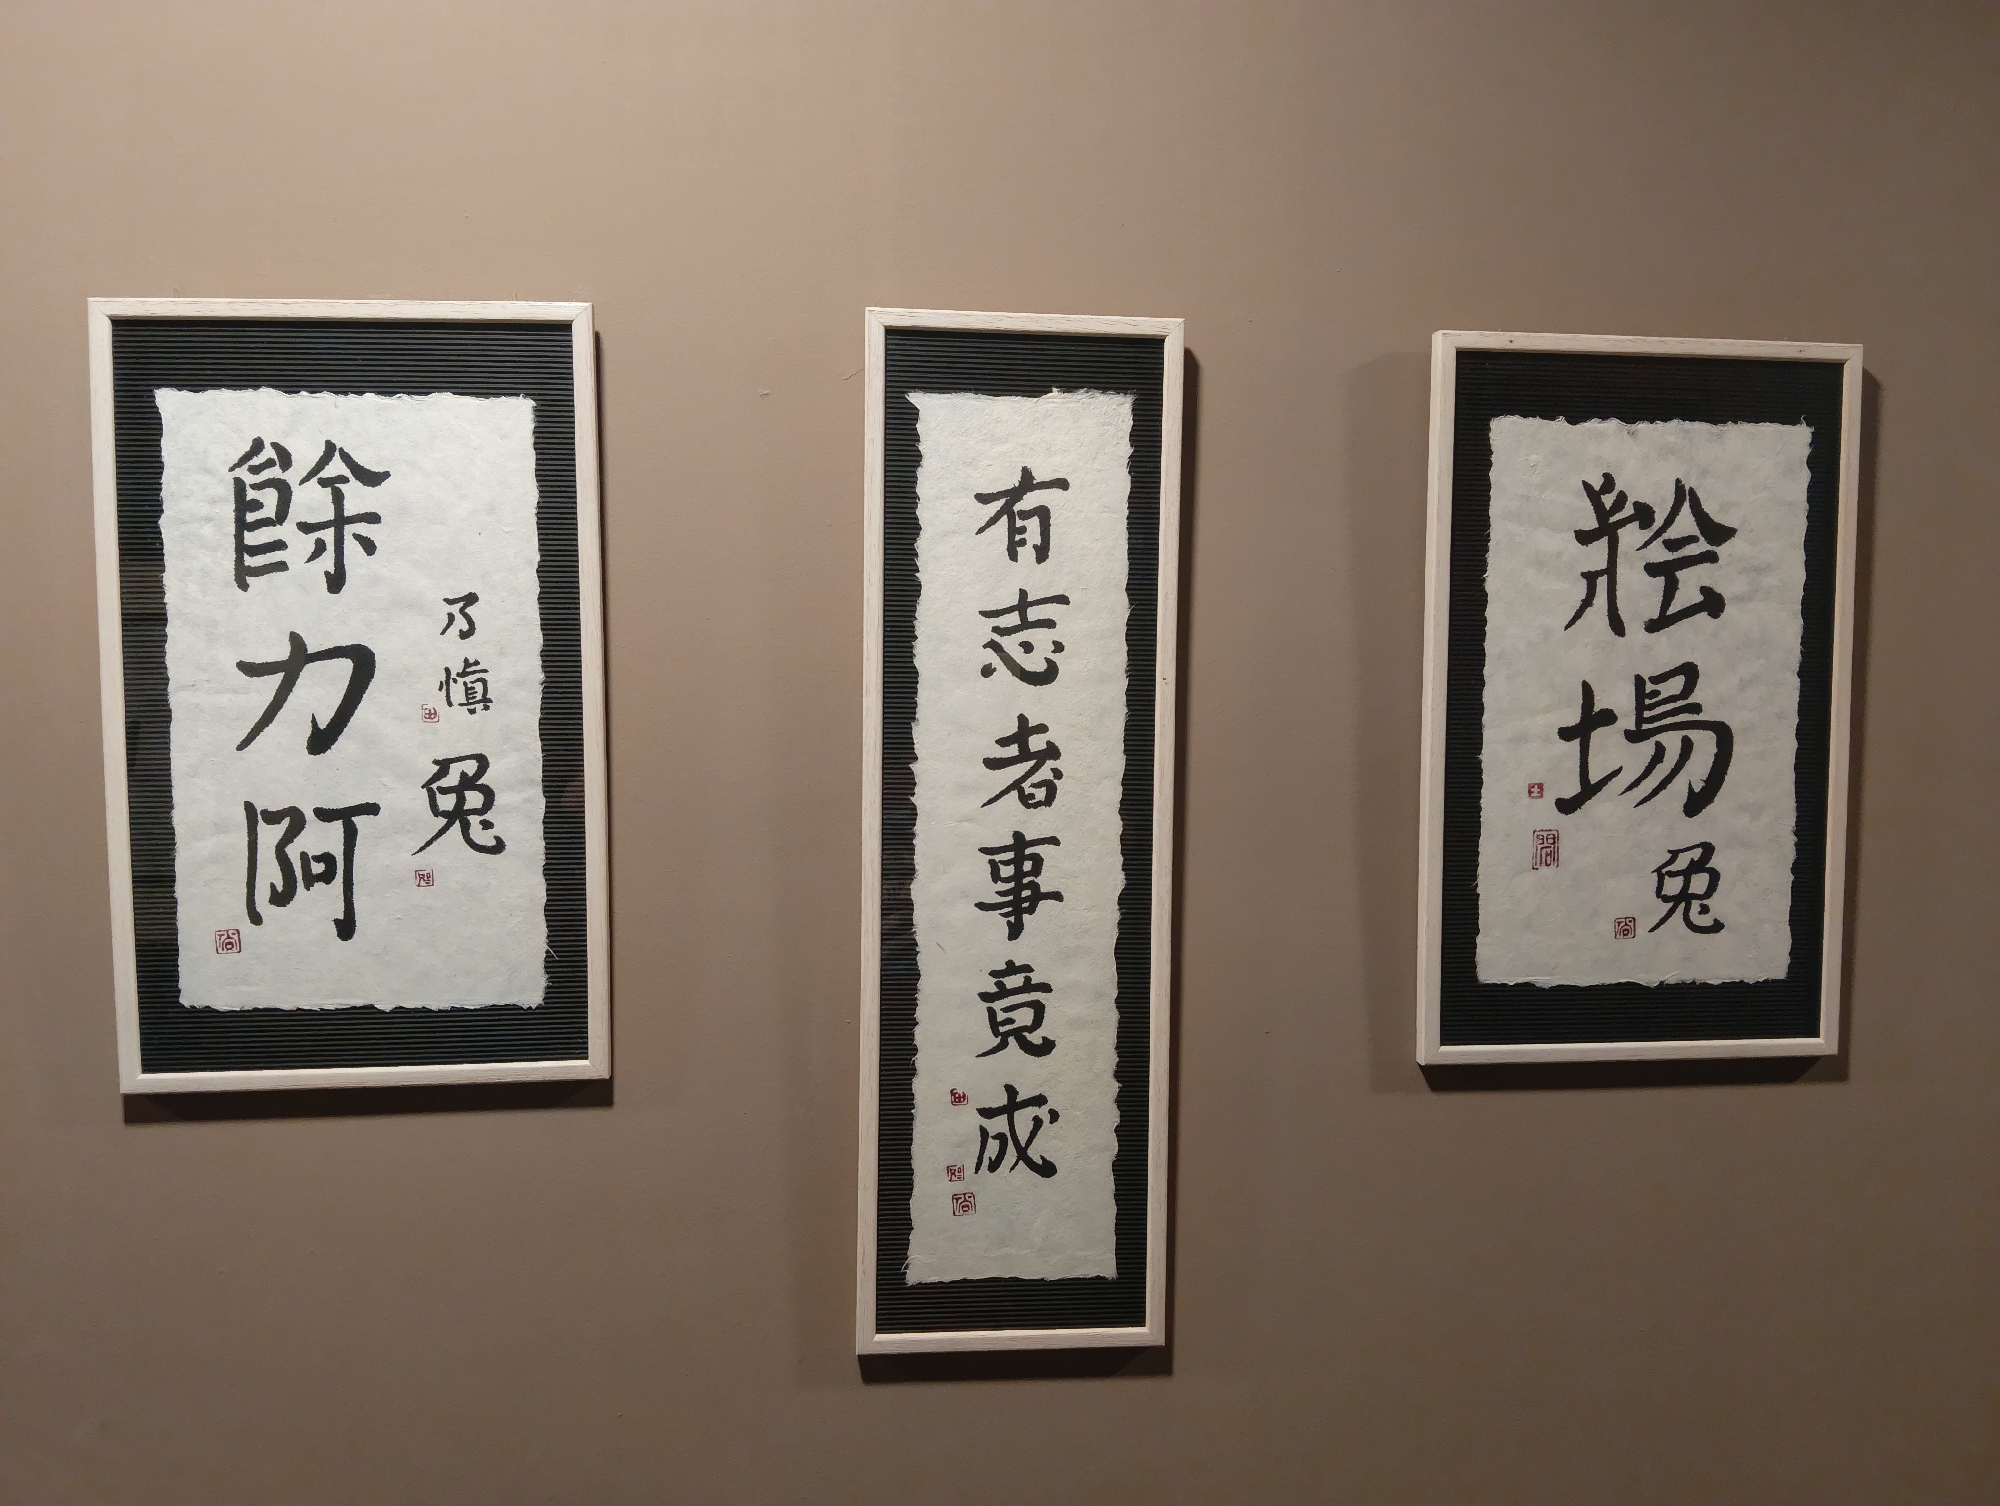 餘力阿
乃慎
兔
有志者事竟成
絵場
兔